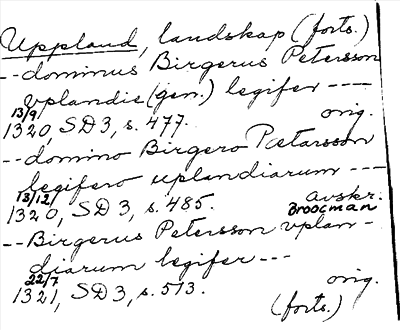 Uppland, landskap (forts.)
--dominus Birgerus Petersson
vplandie (gen.) legifer ---
13/9 1320, SD 3, s. 477. orig.
--domino Birgero Pætarsson
legifero uplandiarum ---
13/12 1320, SD 3, s. 485. Avskr. Broocman
--Birgerus Petersson vplan-
diarum legifer ---
22/7 1321, SD 3, s. 513. orig.
(forts.)